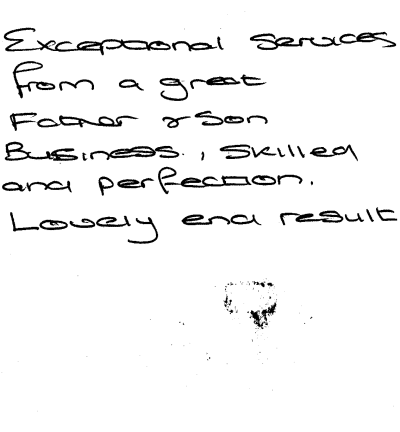 Exceptional Services
from a great
Father & Son
Business, Skilled
and perfection.
Lovely end result